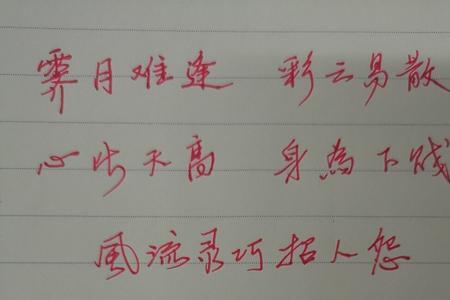 霽月难逢 彩云易散
心比天高 身為下贱
風流灵巧招人怨